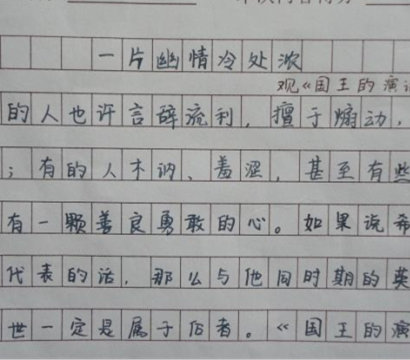 一片幽情冷处浓
观《国王的演讲
的人也许言辞流利，擅于煽动，
；有的人木讷、羞涩，甚至有些
有一颗善良勇敢的心。如果说希
代表的话，那么与他同时期的英
世一定是属于后者。《国王的演